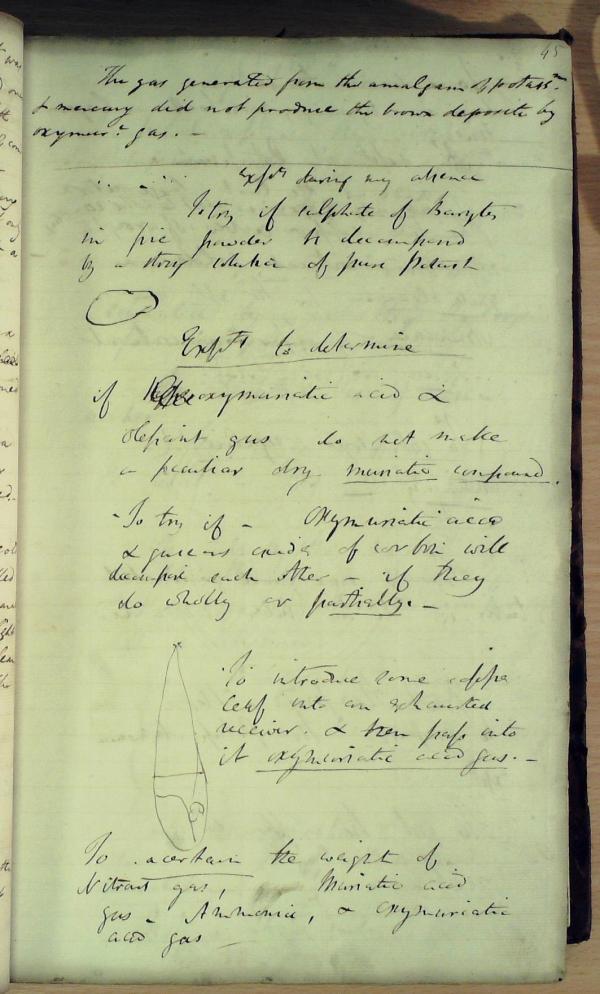 45
The gas generated from the amalgam of potass.m
& mercury did not produce the brown deposite by
oxymur.c gas. —
Exp.ts during my absence
To try if sulphate of Barytes
in fine powder is decomposed
by a strong solution of pure Potash
Exp.ts to determine
if oxymuriatic acid &
olefiant gas do not make
a peculiar dry muriatic compound.
To try if — Oxymuriatic acid
& gaseous oxide of carbon will
decompose each other — if they
do wholly or partially. —
To introduce some copper
leaf into an exhausted
receiver. & then pass into
it oxymuriatic acid gas. —
To ascertain the weight of
Nitrous gas, Muriatic acid
gas — Ammonia, & oxymuriatic
acid gas —